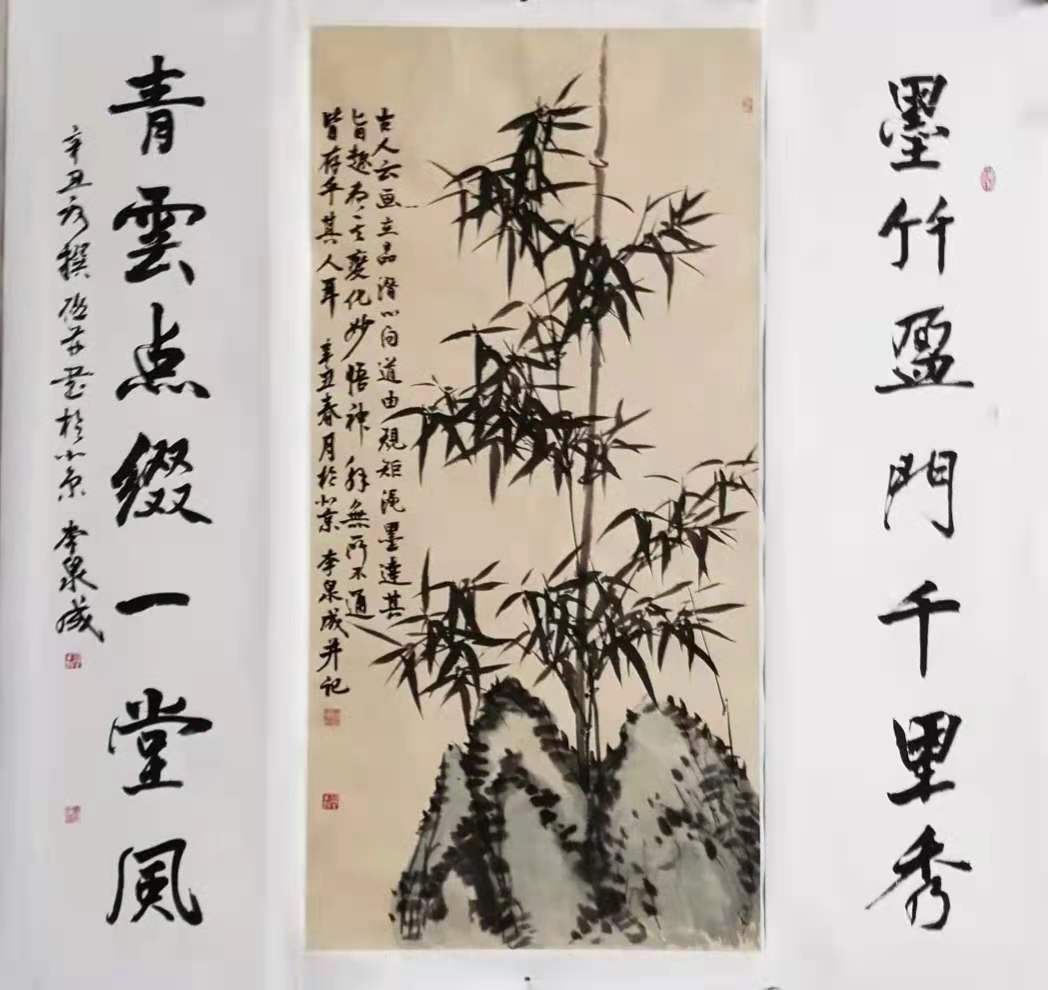 墨竹盈門千里秀
古人云画立品潜心向道由规矩绳墨達其
旨趣而至变化妙悟神解無所不通
皆存乎其人耳 辛丑春月於北京 李泉成并记
青雲点缀一堂风
辛丑 撰 於北京 李泉成